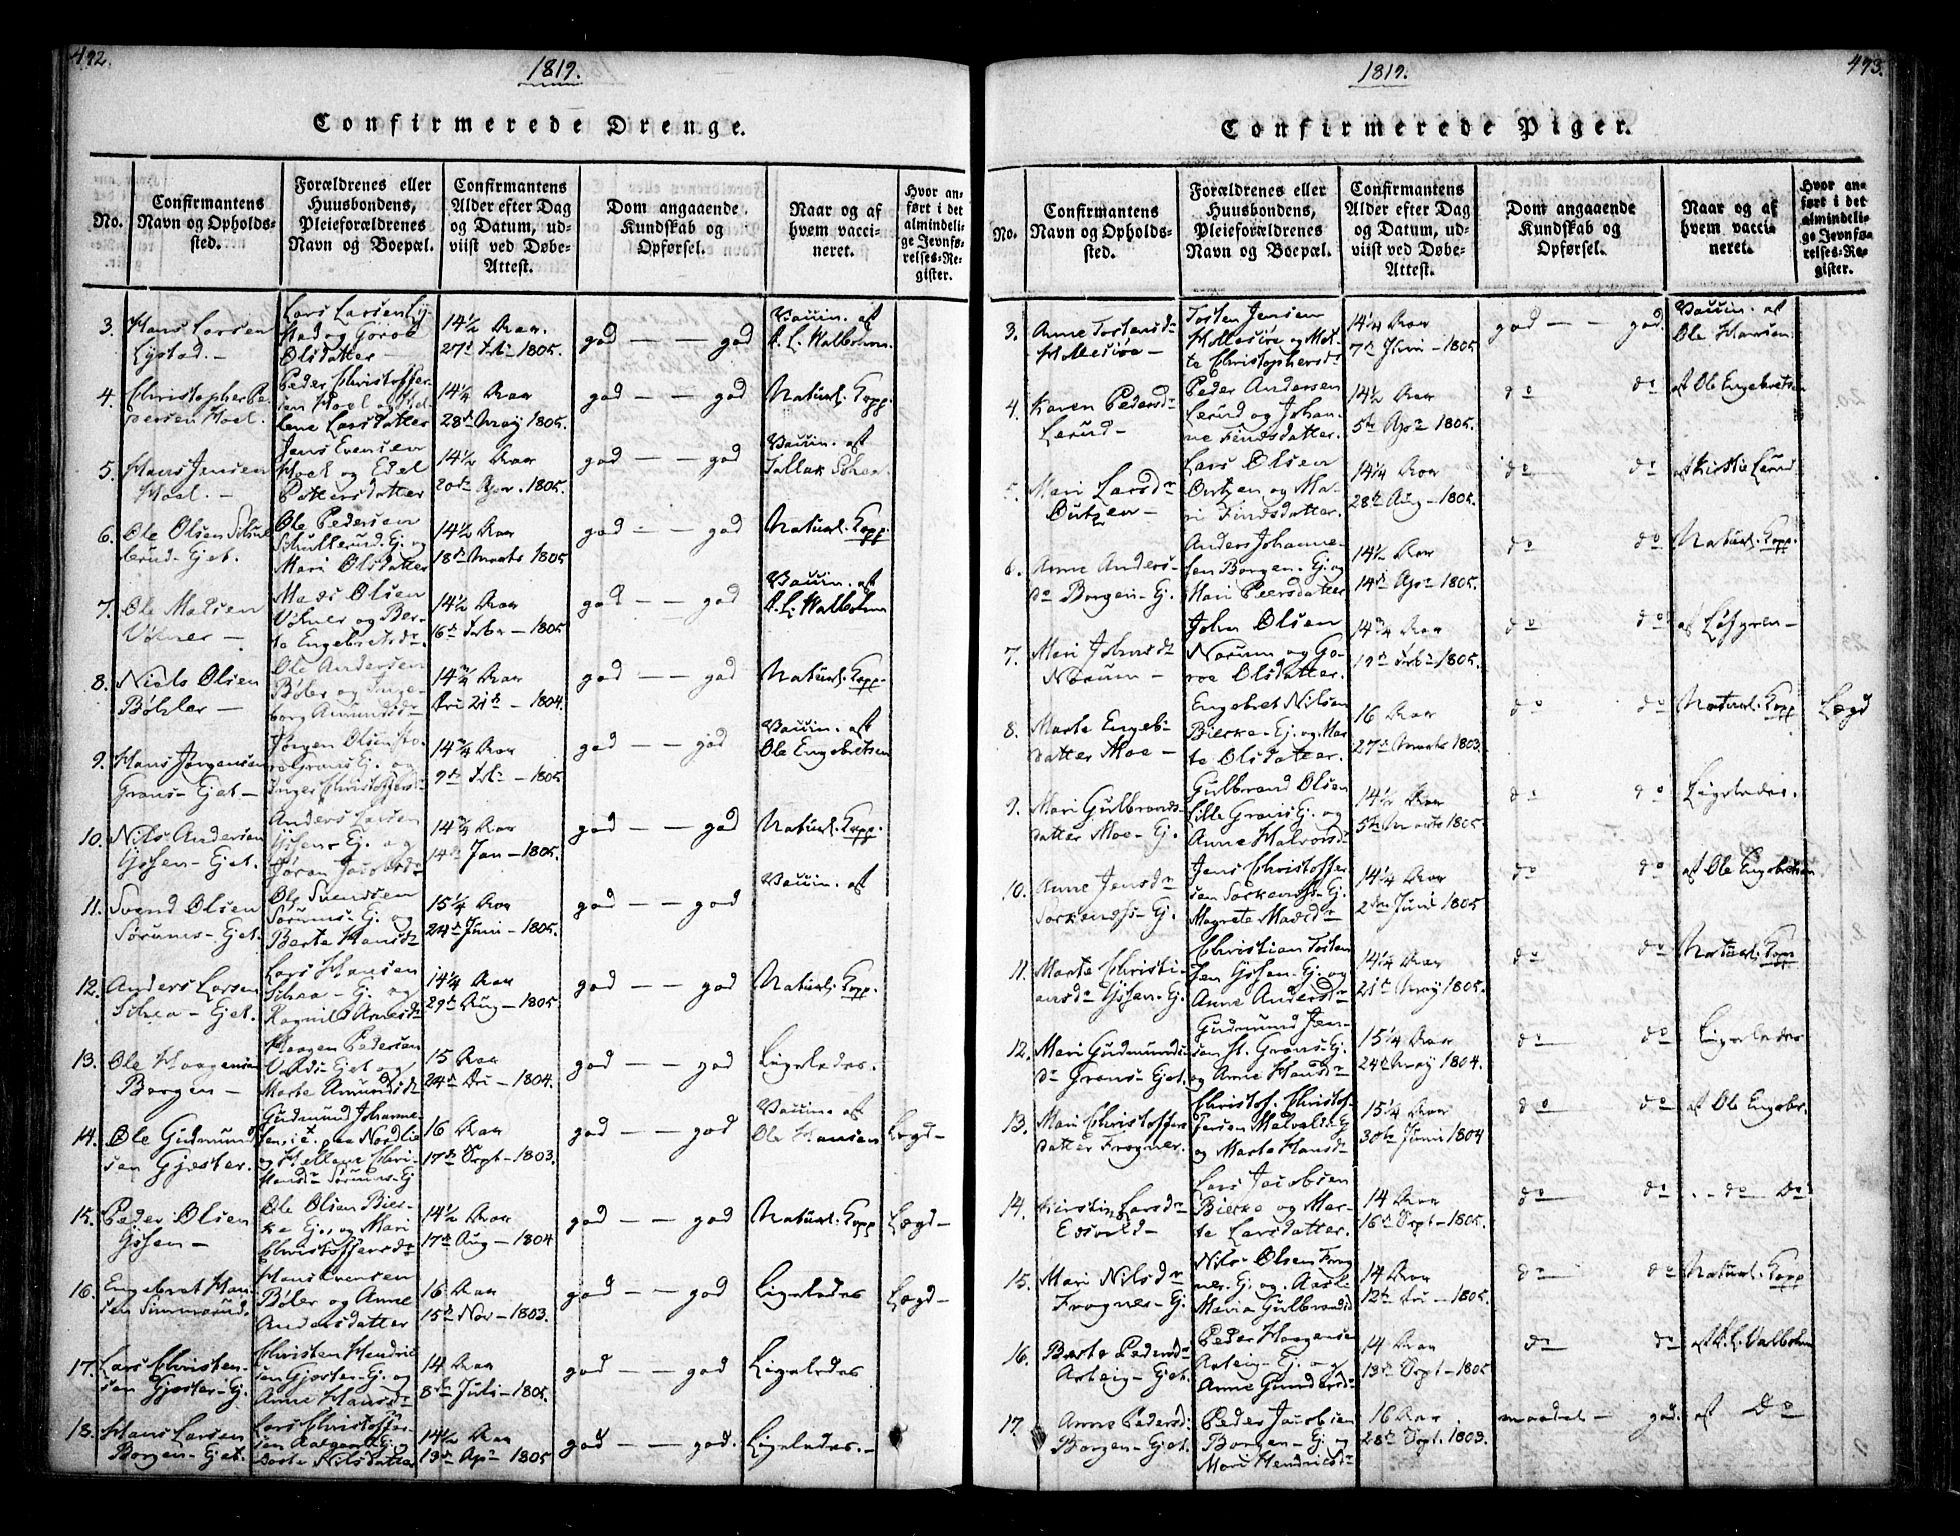 492.
1819.
Confirmerede Drenge.
No.
Confirmantens
Navn og Opholds-
sted.
Forældrenes eller
Huusbondens,
Pleieforældrenes
Navn og Boepæl.
Confirmantens
Alder efter Dag
og Datum, ud-
viist ved Døbe-
Attest.
Dom angaaende
Kundskab og
Opførsel.
Naar og af
hvem vacci-
neret.
Hvor an-
ført i det
almindeli-
ge Jevnfø-
relses-Re-
gister.
3. Hans Larsen
Lystad. –
Lars Larsen Ly-
stad og Goroe
Olsdatter –
14½ Aar.
27de Feb – 1805.
god – – god
Vaccin. af
A. L. Walbohm.
4. Christopher Pe-
dersen Hoel.
Peder Christoffer-
sen Hoel og He-
lene Larsdatter
14½ Aar
28de May 1805.
god – – god
Naturl. Kopp.
5. Hans Jensen
Hoel. –
Jens Evensen
Hoel og Edel
Pettersdatter
14½ Aar
20de Apr. 1805.
god – – god
Vaccin. af
6. Ole Olsen
Ejet.
Ole Pedersen
Ej. og
Mari Olsdatter
14½ Aar
18de Marts 1805
god – – god
Naturl. Kopp.
7. Ole Madsen
Vølner –
Mads Olsen
Vølner og Ber-
te Engebretsdr
14½ Aar
16de Febr – 1805
god – – god
Vaccin. af
A. L. Walbohm
8. Niels Olsen
Bøhler –
Ole Andersen
Bøler og Inge-
borg Amundsdr
14¾ Aar
21de – 1804.
god – – god
Naturl. Kopp.
9. Hans Jørgensen
Grans – Ejet –
Jørgen Olsen Sto-
re Grans Ej. og
Inger Christoffersd
14¾ Aar
9de Feb – 1805
god – – god
Vaccin. af
Ole Engebretsen
10. Nils Andersen
Ejet.
Anders Larsen
Ej. og
Jøran Jacobsdr
14¾ Aar
14de Jan – 1805.
god – – god
Naturl. Kopp.
11. Svend Olsen
Sørums – Ejet.
Ole Svendsen
Sørums – Ej. og
Berte Hansdr
15¼ Aar
24de Juni – 1805.
god – – god
Vaccin. af
12. Anders Larsen
Ejet.
Lars Hansen
Ej. og
Ragnild Arnesdr
14¼ Aar
29de Aug – 1805
god – – god
Naturl. Kopp.
13. Ole Haagensen
Borgen –
Haagen Pedersen
Ejet og
Marte Amundsdr
15 Aar
24de – 1804.
god – – god
Ligeledes.
14. Ole Gudmund
sen Gjester.
Gudmund Johanne-
sen paa Nordlie
og Hellene Chri-
Sørums – Ej
16 Aar
17de Sept – 1803.
god – – god
Vaccin. af
Ole Hansen
Lægd –
15. Peder Olsen
Ole Olsen Bier-
ke Ej. og Mari
Christoffersdr
14½ Aar
17de Aug – 1804
god – – god
Naturl. Kopp
Lægd –
16. Engebret Han-
sen
Hans Evensen
Bøler og Anne
Andersdatter
16 Aar
15de Nov – 1803.
god – – god
Ligeledes
Lægd –
17. Lars Christen-
sen Gjester – Ej.
Christen Hendric
sen Gjester – Ej. og
Anne Hansdr
14 Aar
8de Juli – 1805.
god – – god
Ligeledes
18. Hans Larsen
Borgen – Ejet.
Lars Christoffer
sen Ej.
Nilsdatter
14½ Aar
19de Apr – 1805
god – – god.
Ligeledes. –
493.
1819.
Confirmerede Piger.
No.
Confirmantens
Navn og Opholds-
sted.
Forældrenes eller
Huusbondens,
Pleieforældrenes
Navn og Boepæl.
Confirmantens
Alder efter Dag
og Datum, ud-
viist ved Døbe-
Attest.
Dom angaaende
Kundskab og
Opførsel.
Naar og af
hvem vacci-
neret.
Hvor an-
ført i det
almindeli-
ge Jevnfø-
relses-Re-
gister.
3. Anne Tostensdr
Tosten Jensen
og Mar-
te Christophersdr
14¼ Aar
7de Juni – 1805
god – – god.
Vaccin. af
Ole Hansen.
4. Karen Pedersdr
Lerud –
Peder Andersen
Lerud og Johan-
ne Findsdatter.
14½ Aar
5te Apr 1805.
do do
af Ole Engebretsen
5. Mari Larsdr
Lars Olsen
og Ma-
ri Findsdatter.
14¼ Aar
28de Aug – 1805.
do do
af Lerud
6. Anne Anders-
dr Borgen – Ej.
Anders Johanne-
sen Borgen – Ej. og
Mari Peersdatter
14½ Aar
14de Apr 1805.
do do
Naturl. Kopp.
7. Mari Johnsdr
Norum –
John Olsen
Norum og Go-
roe Olsdatter.
14¾ Aar
19de Feb – 1805.
do do
af Løfgren –
8. Marte Engeb-
datter Moe –
Engebret Nilsen
Bierke – Ej. og Mar
te Olsdatter.
16 Aar
27de Marts 1803.
do do
Naturl. Kopp
Lægd
9. Mari Gulbrands-
datter Moe – Ej.
Gulbrand Olsen
Lille Grans Ej. og
Anne Halvorsdr
14½ Aar
5te Marts 1805
do do
Ligeledes.
10. Anne Jensdr
Ej.
Jens Christoffer
sen Ej.
Magrete Madsdr
14¼ Aar
2den Juni 1805
do do
af Ole Engebretsen
11. Marte Christi-
ansdr Ej.
Christian Tosten
sen Ej. og
Anne Andersdr
14¼ Aar
21de May 1805.
do do
Naturl. Kopp
12. Mari Gudmunds-
dr Grans – Ejet.
Gudmund Jen-
sen st. Grans – Ej.
og Anne Hansdr
15¼ Aar
24de May 1804.
do do
Ligeledes
13. Mari Christoffers
datter Frogner.
Christof. Christof-
fersen Ej
og Marte Hansdr
15¼ Aar
30te Juni 1804
do do
af Ole Engebr.
14. Kierstin Larsdr
Lars Jacobsen
Bierke og Mar-
te Larsdatter.
14 Aar
16de Sept – 1805.
do do
. – do Do
15. Mari Nilsdr
Frogner – Ej.
Nils Olsen Frog
ner. Ej. og
Maria Gulbrandsd
14 Aar
12te – 1805.
do do
Naturl. Kopp
16. Berte Pedersdr
Arteig – Ejet.
Peder Haagensen
Arteig – Ej. og
Anne Gundersdr
14 Aar
13de Sept – 1805
do do
af A. L. Valbohm
17. Anne Pedersd.
Borgen – Ejet.
Peder Jacobsen
Borgen – Ej. og
Mari Hendricsdr
16 Aar
28de Sept. 1803.
maadel – god.
af Do